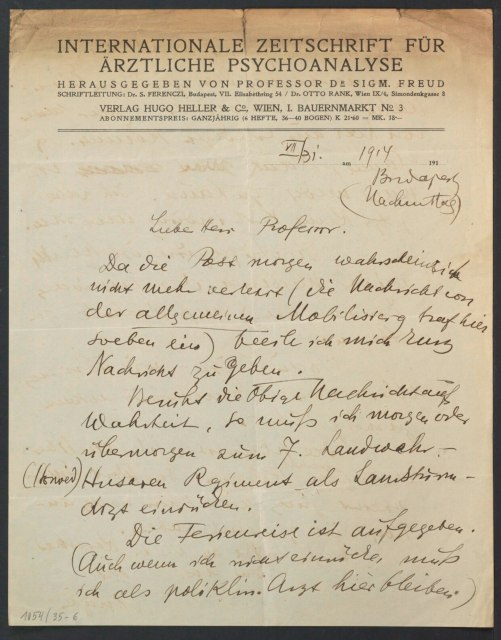 INTERNATIONALE ZEITSCHRIFT FÜR
ÄRZTLICHE PSYCHOANALYSE
HERAUSGEGEBEN VON PROFESSOR DR SIGM. FREUD
SCHRIFTLEITUNG: Dr. S. FERENCZI, Budapest, VII. Elisabethring 54 / Dr. OTTO RANK, Wien IX/4, Simondenkgasse 8
VERLAG HUGO HELLER & Co, WIEN, I. BAUERNMARKT No 3
ABONNEMENTSPREIS: GANZJÄHRIG (6 HEFTE, 36—40 BOGEN) K 21·60 = MK. 18·—
VII/31. am 1914 191
Budapest
(Nachmittag)
Lieber Herr Professor.
Da die Post morgen wahrscheinlich
nicht mehr verkehrt (die Nachricht von
der allgemeinen Mobilisierg traf hier
soeben ein) beeile ich mich Ihnen
Nachricht zu geben.
Beruht die obige Nachricht auf
Wahrheit, so muß ich morgen oder
übermorgen zum 7. Landwehr-
(Honvéd) Husaren Regiment als Landsturm-
Arzt einrücken.
Die Ferienreise ist aufgegeben.
(Auch wenn ich nicht einrücke, muß
ich als poliklin. Arzt hier bleiben.)
1054/35-6